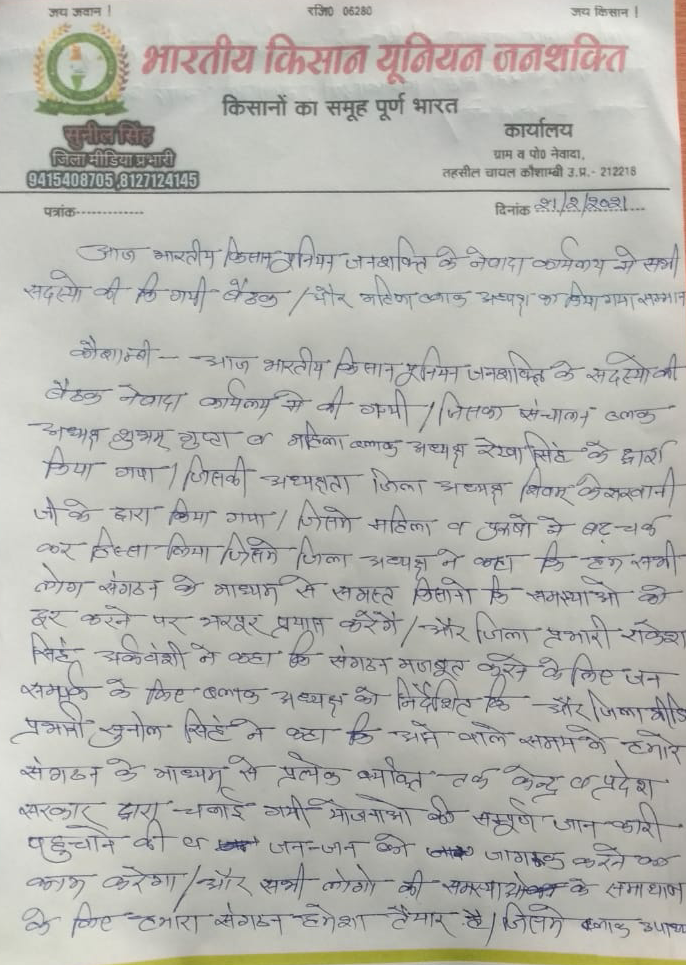 जय जवान ! रजि0 06280 जय किसान !
भारतीय किसान यूनियन जनशक्ति
किसानों का समूह पूर्ण भारत
सुनील सिंह
जिला मीडिया प्रभारी
9415408705,8127124145
कार्यालय
ग्राम व पो0 नेवादा,
तहसील चायल कौशाम्बी उ.प्र.- 212218
पत्रांक------------- दिनांक २१/२/२०२१
आज भारतीय किसान यूनियन जनशक्ति के नेवादा कार्यालय मे सभी
सदस्यो की कि गयी बैठक / और महिला ब्लाक अध्यक्ष का किया गया सम्मान
कौशाम्बी - आज भारतीय किसान यूनियन जनशक्ति के सदस्यो की
बैठक नेवादा कार्यालय मे की गयी / जिसका संचालन ब्लाक
अध्यक्ष शुभम् गुप्ता व महिला ब्लाक अध्यक्ष रेखा सिंह के द्वारा
किया गया / जिसकी अध्यक्षता जिला अध्यक्ष शिवम् केसरवानी
जी के द्वारा किया गया / जिसमे महिला व पुरुषो ने बढ़-चढ़
कर हिस्सा लिया जिसमे जिला अध्यक्ष ने कहा कि हम सभी
लोग संगठन के माध्यम से समस्त किसानो कि समस्याओं को
दूर करने पर भरपूर प्रयास करेंगे / और जिला प्रभारी राकेश
सिंह अर्कवंशी ने कहा कि संगठन मजबूत करने के लिए जन
सम्पर्क के लिए ब्लाक अध्यक्ष को निर्देशित कि और जिला मीडि
प्रभारी सुनील सिंह ने कहा कि आने वाले समय मे हमारे
संगठन के माध्यम् से प्रत्येक व्यक्ति तक केन्द्र व प्रदेश
सरकार द्वारा चलाई गयी योजनाओ की सम्पूर्ण जानकारी
पहुचाने की व जन-जन को जागरूक करने का
काम करेगा / और सभी लोगो की समस्याओ के समाधान
के लिए हमारा संगठन हमेशा तैयार है / जिसमे ब्लाक उपाध्य